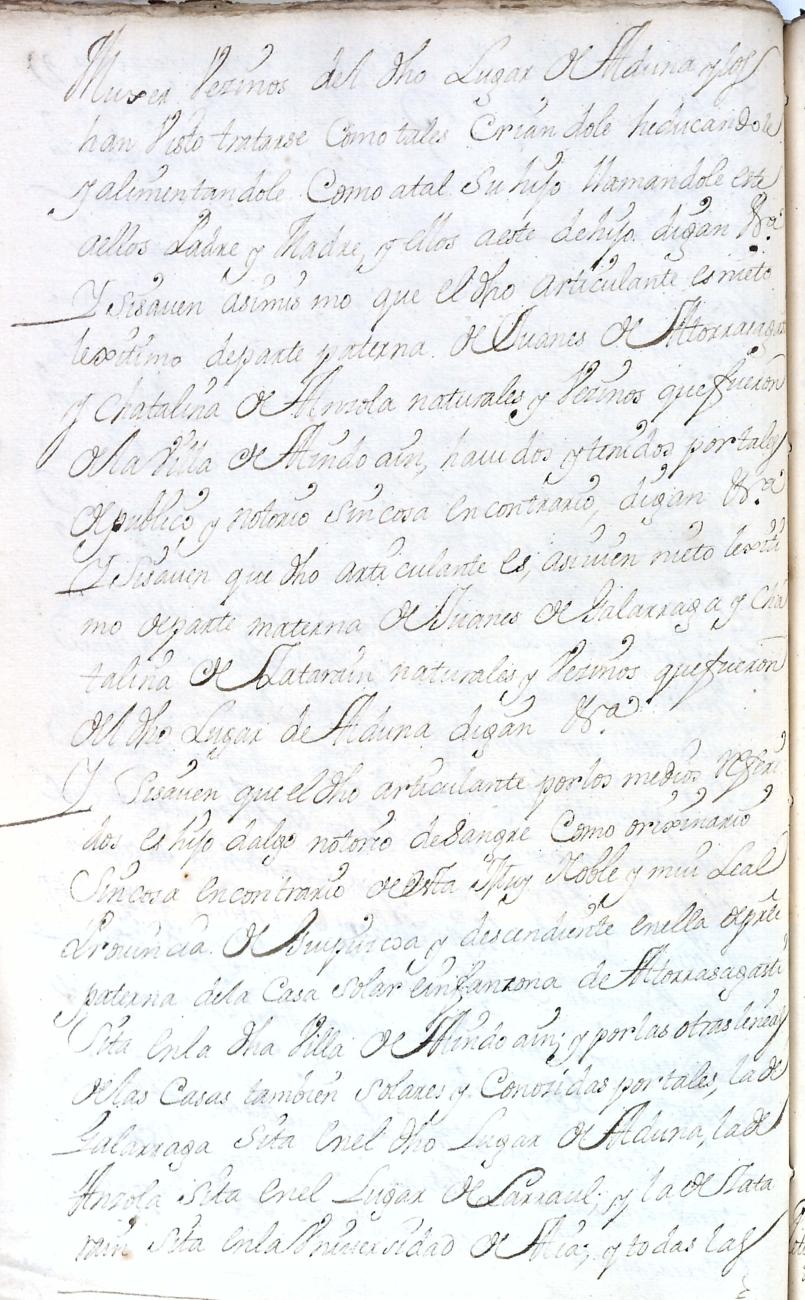 Muxer Vezinos del dho Lugar de Alduna y los
han visto tratarse Como tales Criandole heducandole
y alimentandole Como atal Su hijo llamandole este
aellos Padre y Madre, y ellos aeste dehijo digan &.a
Y Sisauen asimis mo que el dho articulante es nieto
lexitimo departe paterna de Juanes de Atorrasagasti
y Chatalina de Anzola naturales y Vezinos que fueron
de la Villa de Aindoain, hauidos y tenidos por tales
de publico y notorio sin cosa en contrario, digan &.a
Y Sisauen que dho articulante es, asiuien nieto lexiti
mo de parte materna de Juanes de Galarraga y Cha
talina de naturales y Vezinos que fueron
del dho Lugar de Alduna digan &.a
Y Sisauen que el dho articulante por los medios referi
dos es hijo dalgo notorio de Sangre Como orixinario
Sin cosa en contrario de esta Muy Noble y mui Leal
Prouincia de Guipuzcoa y descendiente en ella de pte
paterna dela Casa Solar e infanzona de Atorrasagasti
Sita en la dha Villa de Aindoain; y por las otras lineas
de las Casas tambien Solares y Conozidas por tales, la de
Galarraga Sita en el dho Lugar de Alduna, la de
Anzola Sita en el Lugar de Larraul; y, la de
Sita en la Vniuersidad de Aia; y todas las